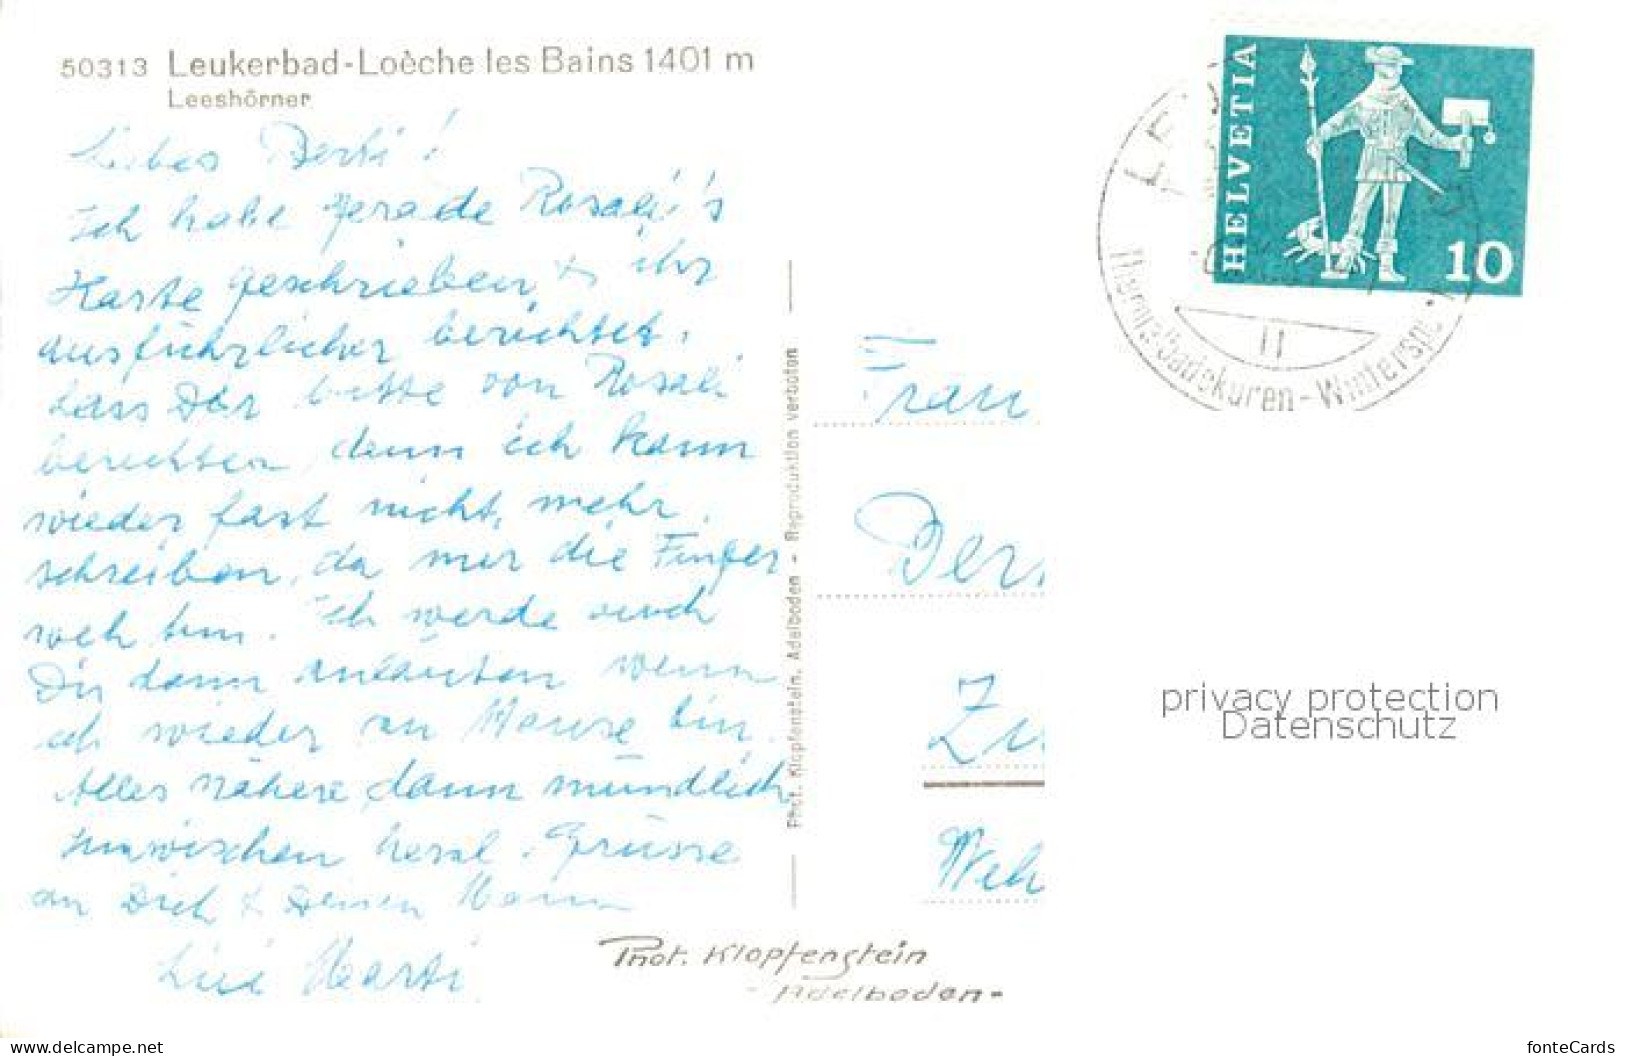 50313 Leukerbad-Loèche les Bains 1401 m
Leeshörner
Liebes Berti!
Ich habe gerade Rosali's
Karte geschrieben & ihr
ausführlicher berichtet.
Lass Dir bitte von Rosali
berichten, denn ich kann
wieder fast nicht mehr
schreiben, da mir die Finger
weh tun. Ich werde auch
Dir dann anläuten wenn
ich wieder zu Hause bin.
Alles nähere dann mündlich
Inzwischen herzl. Grüsse
an Dich & Deinen Mann
Marti
Phot. Klopfenstein, Adelboden - Reproduktion verboten
Phot. Klopfenstein
- Adelboden -
HELVETIA
10
Thermalbadekuren - Wintersp
Frau
Der
Zu
Weh
privacy protection
Datenschutz
www.delcampe.net
fonteCards